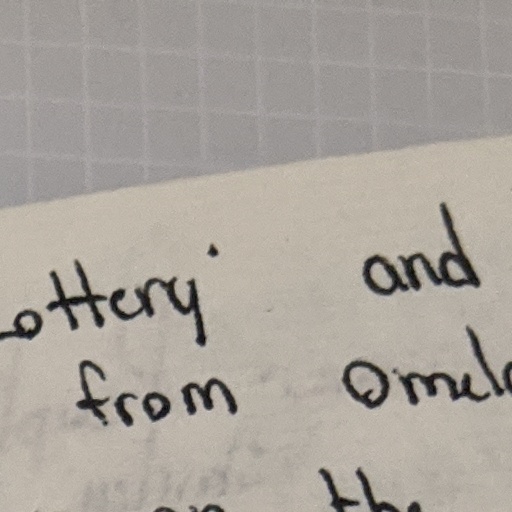 ottery' and
from Omel
the